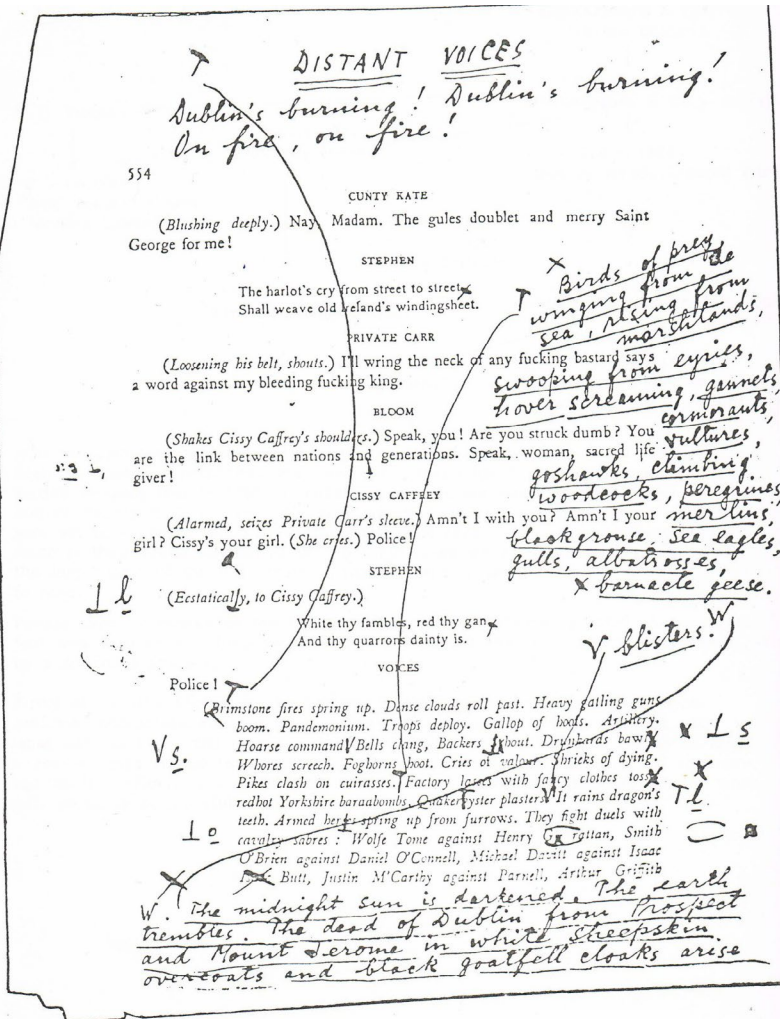 DISTANT VOICES
Dublin's burning! Dublin's burning!
On fire, on fire!
554
CUNTY KATE
(Blushing deeply.) Nay, Madam. The gules doublet and merry Saint
George for me!
STEPHEN
The harlot's cry from street to street
Shall weave old Ireland's windingsheet.
PRIVATE CARR
(Loosening his belt, shouts.) I'll wring the neck of any fucking bastard says
a word against my bleeding fucking king.
BLOOM
(Shakes Cissy Caffrey's shoulders.) Speak, you! Are you struck dumb? You
are the link between nations and generations. Speak, woman, sacred life
giver!
CISSY CAFFREY
(Alarmed, seizes Private Carr's sleeve.) Amn't I with you? Amn't I your
girl? Cissy's your girl. (She cries.) Police!
STEPHEN
(Ecstatically, to Cissy Caffrey.)
White thy fambles, red thy gan
And thy quarrons dainty is.
VOICES
Police!
(Brimstone fires spring up. Dense clouds roll past. Heavy gatling guns
boom. Pandemonium. Troops deploy. Gallop of hoofs. Artillery.
Hoarse command Bells clang, Backers shout. Drunkards bawl
Whores screech. Foghorns hoot. Cries of valour. Shrieks of dying.
Pikes clash on cuirasses. Factory lasses with fancy clothes toss
redhot Yorkshire baraabombs. Quakeryster plasters It rains dragon's
teeth. Armed heros spring up from furrows. They fight duels with
cavalry sabres: Wolfe Tone against Henry Grattan, Smith
O'Brien against Daniel O'Connell, Michael Davitt against Isaac
Butt, Justin M'Carthy against Parnell, Arthur Griffith
X Birds of prey
winging from de
sea, rising from
marshlands,
swooping from eyries,
hover screaming, gannets,
cormorants,
vultures,
goshawks, climbing
woodcocks, peregrines,
merlins,
blackgrouse, sea eagles,
gulls, albatrosses,
x barnacle geese.
V blisters. W
⊥ l
V s.
⊥ s
T l
⊥ o
W. The midnight sun is darkened. The earth
trembles. The dead of Dublin from Prospect
and Mount Jerome in white sheepskin
overcoats and black goatfell cloaks arise